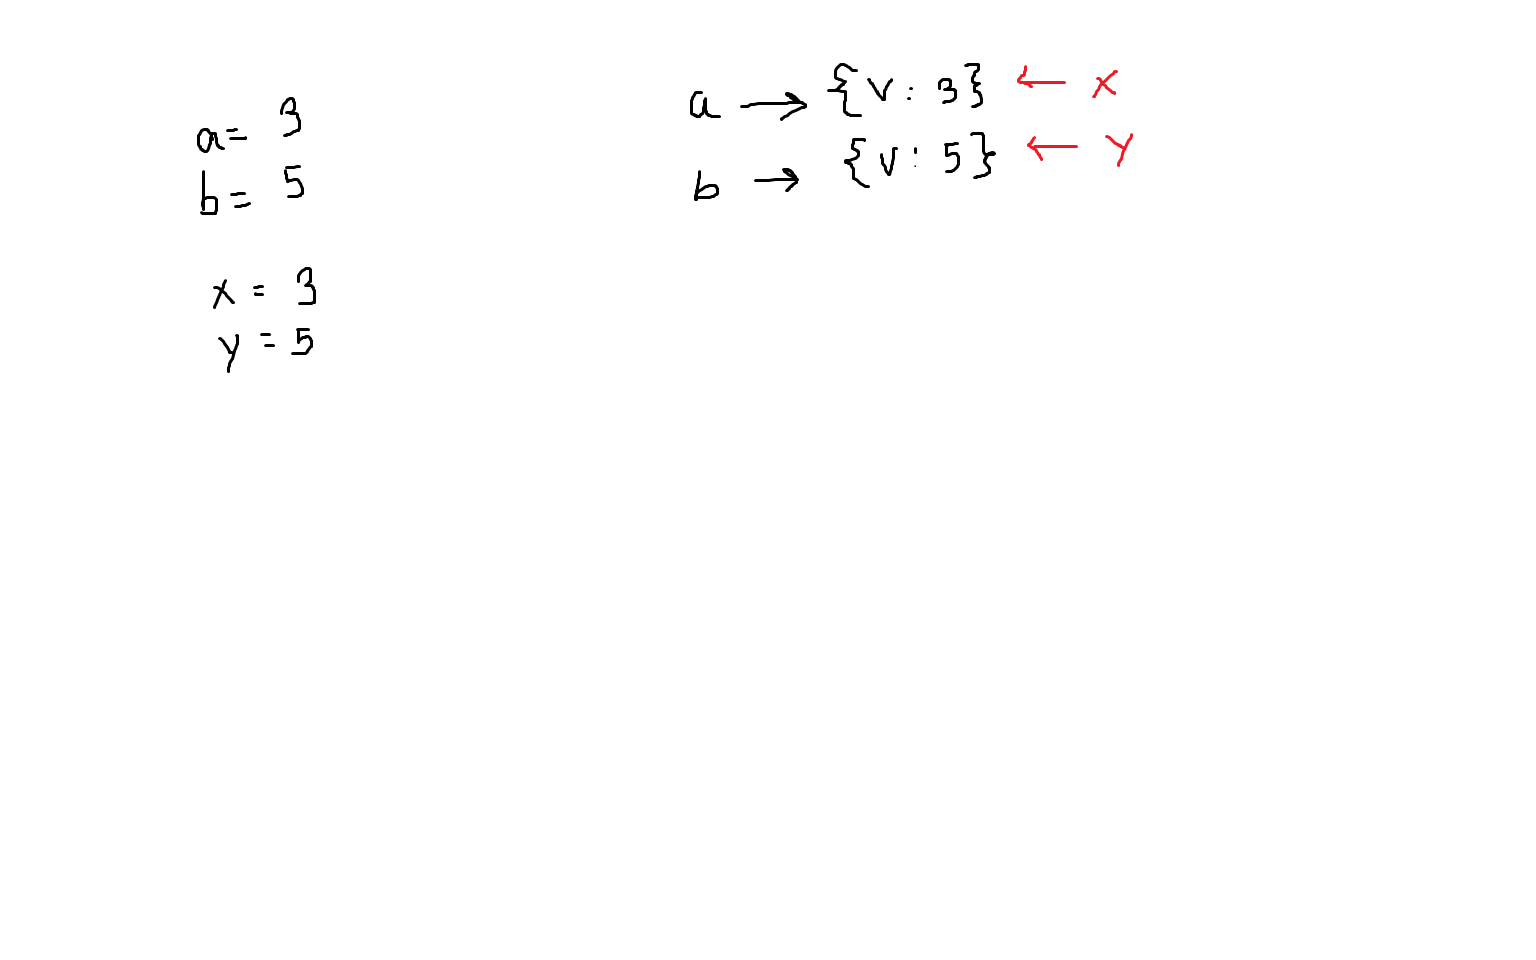 a= 3
b= 5
x = 3
y = 5
a → {v: 3} ← x
b → {v: 5} ← y